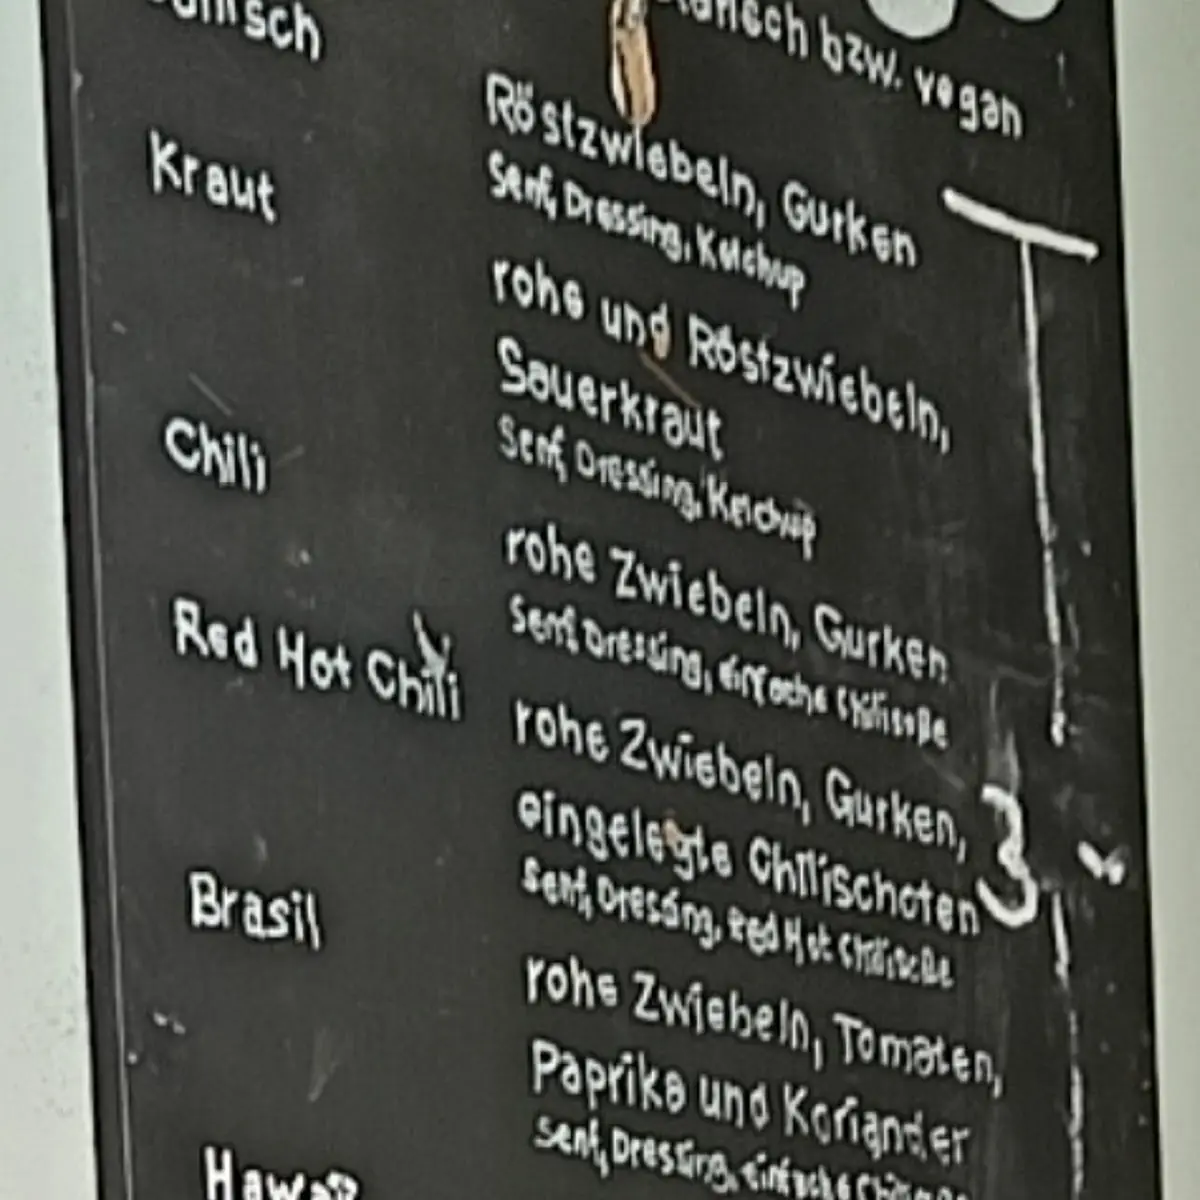 bzw. vegan
Röstzwiebeln, Gurken
Kraut
Senf, Dressing, Ketchup
rohe und Röstzwiebeln,
Sauerkraut
Chili
Senf, Dressing, Ketchup
rohe Zwiebeln, Gurken
Red Hot Chili
Senf, Dressing, einfache Chilisoße
rohe Zwiebeln, Gurken,
eingelegte Chilischoten
3,-
Brasil
Senf, Dressing, Red Hot Chilisoße
rohe Zwiebeln, Tomaten,
Paprika und Koriander
Senf, Dressing, einfache